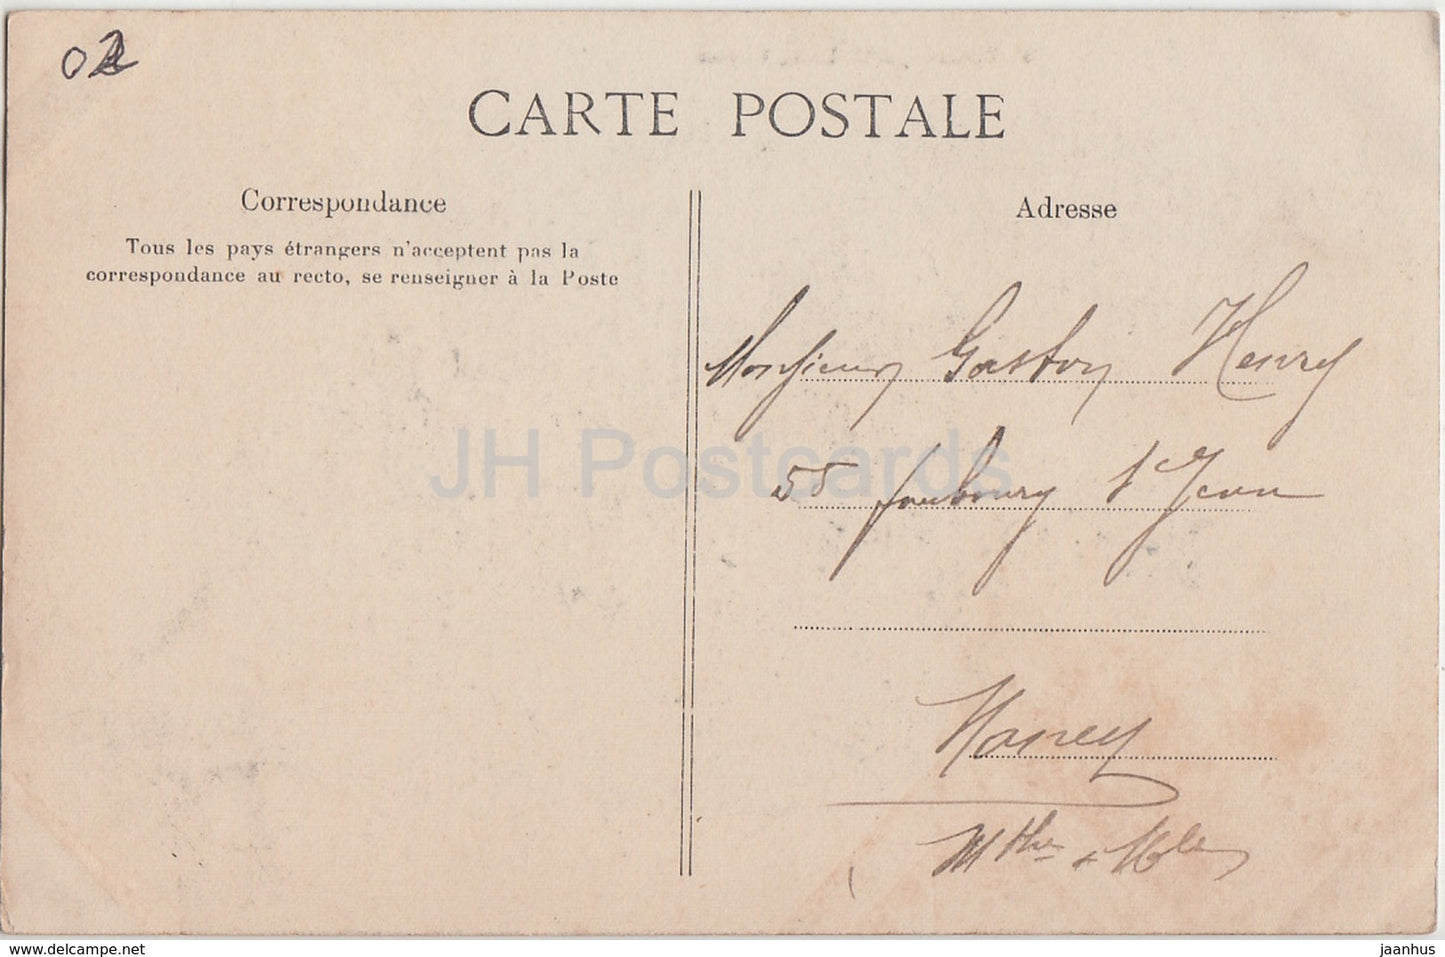 02
CARTE POSTALE
Correspondance
Tous les pays étrangers n'acceptent pas la
correspondance au recto, se renseigner à la Poste
Adresse
Monsieur Gaston Henry
55 faubourg St Jean
Nancy
Mthe & Mlle
JH Postcards
www.delcampe.net
jaanhus